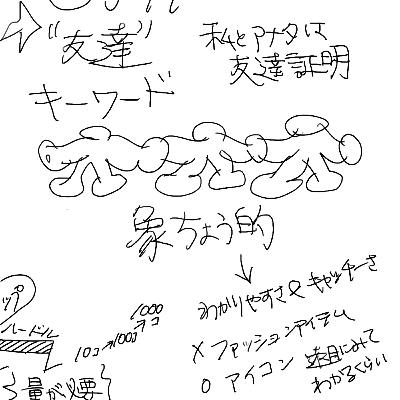 "友達"
キーワード
私とアナタは
友達証明
象ちょう的
↓
わかりやすさ&キャッチーさ
× ファッションアイテム
○ アイコン 遠目にみて
わかるくらい
ップ
ハードル
10コ→100コ→1000コ
量が必要